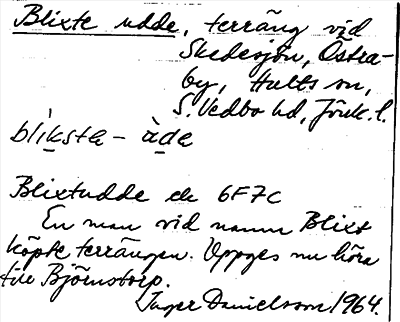 Blixte udde, terräng vid
Skedesjön, Östra-
by, Hults sn,
S. Vedbo hd, Jönk. l.
bliksta - àde
Blixtudde ek 6F7C
En man vid namn Blixt
köpte terrängen. Uppges nu höra
till Björnstorp.
Inger Danielsson 1964.